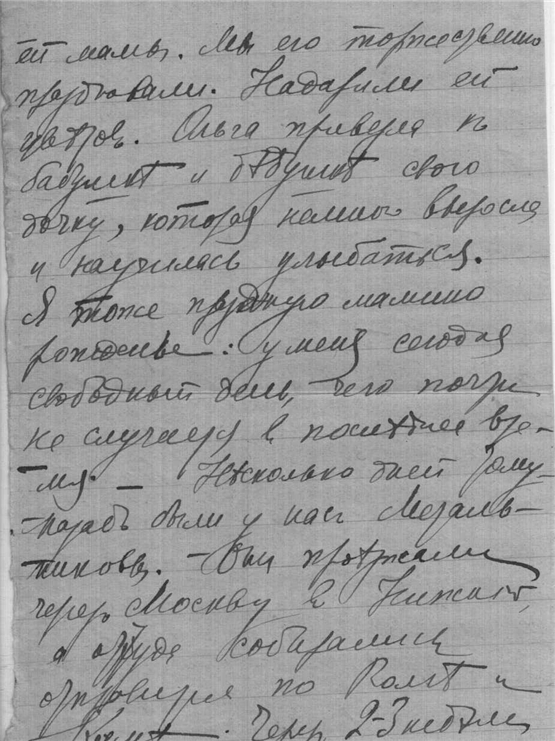 ей мамы. Мы его торжественно
праздновали. Надарили ей
цвѣтовъ. Ольга привезла къ
бабушкѣ и дѣдушкѣ свою
дочку, которая немного выросла
и научилась улыбаться.
Я тоже праздную мамино
рожденье: у меня сегодня
свободный день, чего почти
не случается в послѣднее вре-
мя. — Нѣсколько дней тому
назадъ были у насъ Мезаль-
тиковы. — Они проѣзжали
черезъ Москву в Нижній,
а оттуда собирались
отправиться по Волгѣ и
Камѣ. Черезъ 2-3 недѣли